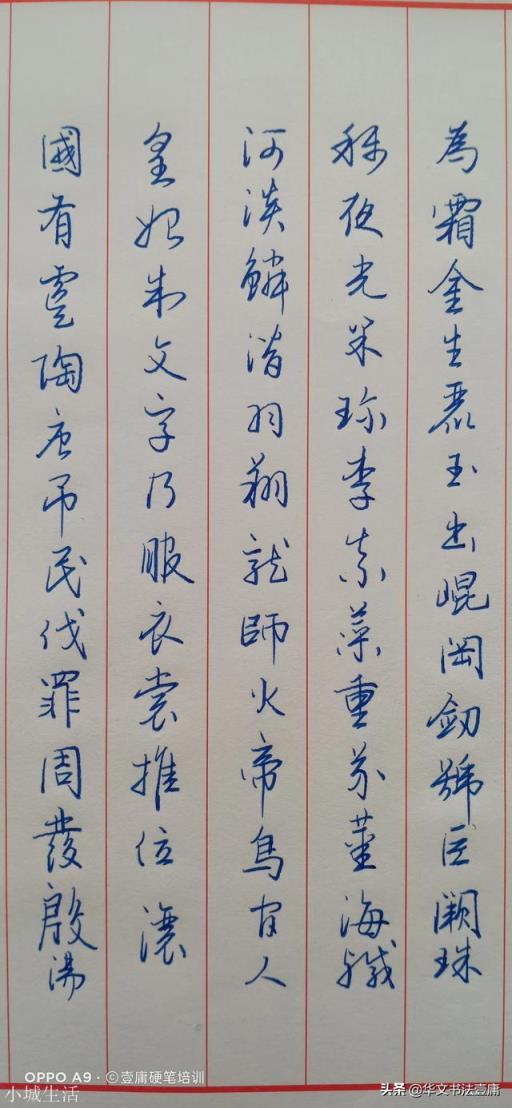 為霜金生麗玉出崐岡劒號巨闕珠
稱夜光果珍李柰菜重芥薑海鹹
河淡鱗潛羽翔龍師火帝鳥官人
皇始制文字乃服衣裳推位讓
國有虞陶唐吊民伐罪周發殷湯
OPPO A9 · ©壹庸硬笔培训
小城生活
头条 @华文书法壹庸